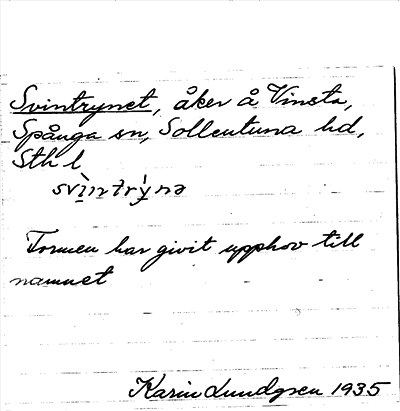 Svintrynet, åker å Vinsta,
Spånga sn, Sollentuna hd,
Sth l
svìntrỳnə
Formen har givit upphov till
namnet
Karin Lundgren 1935